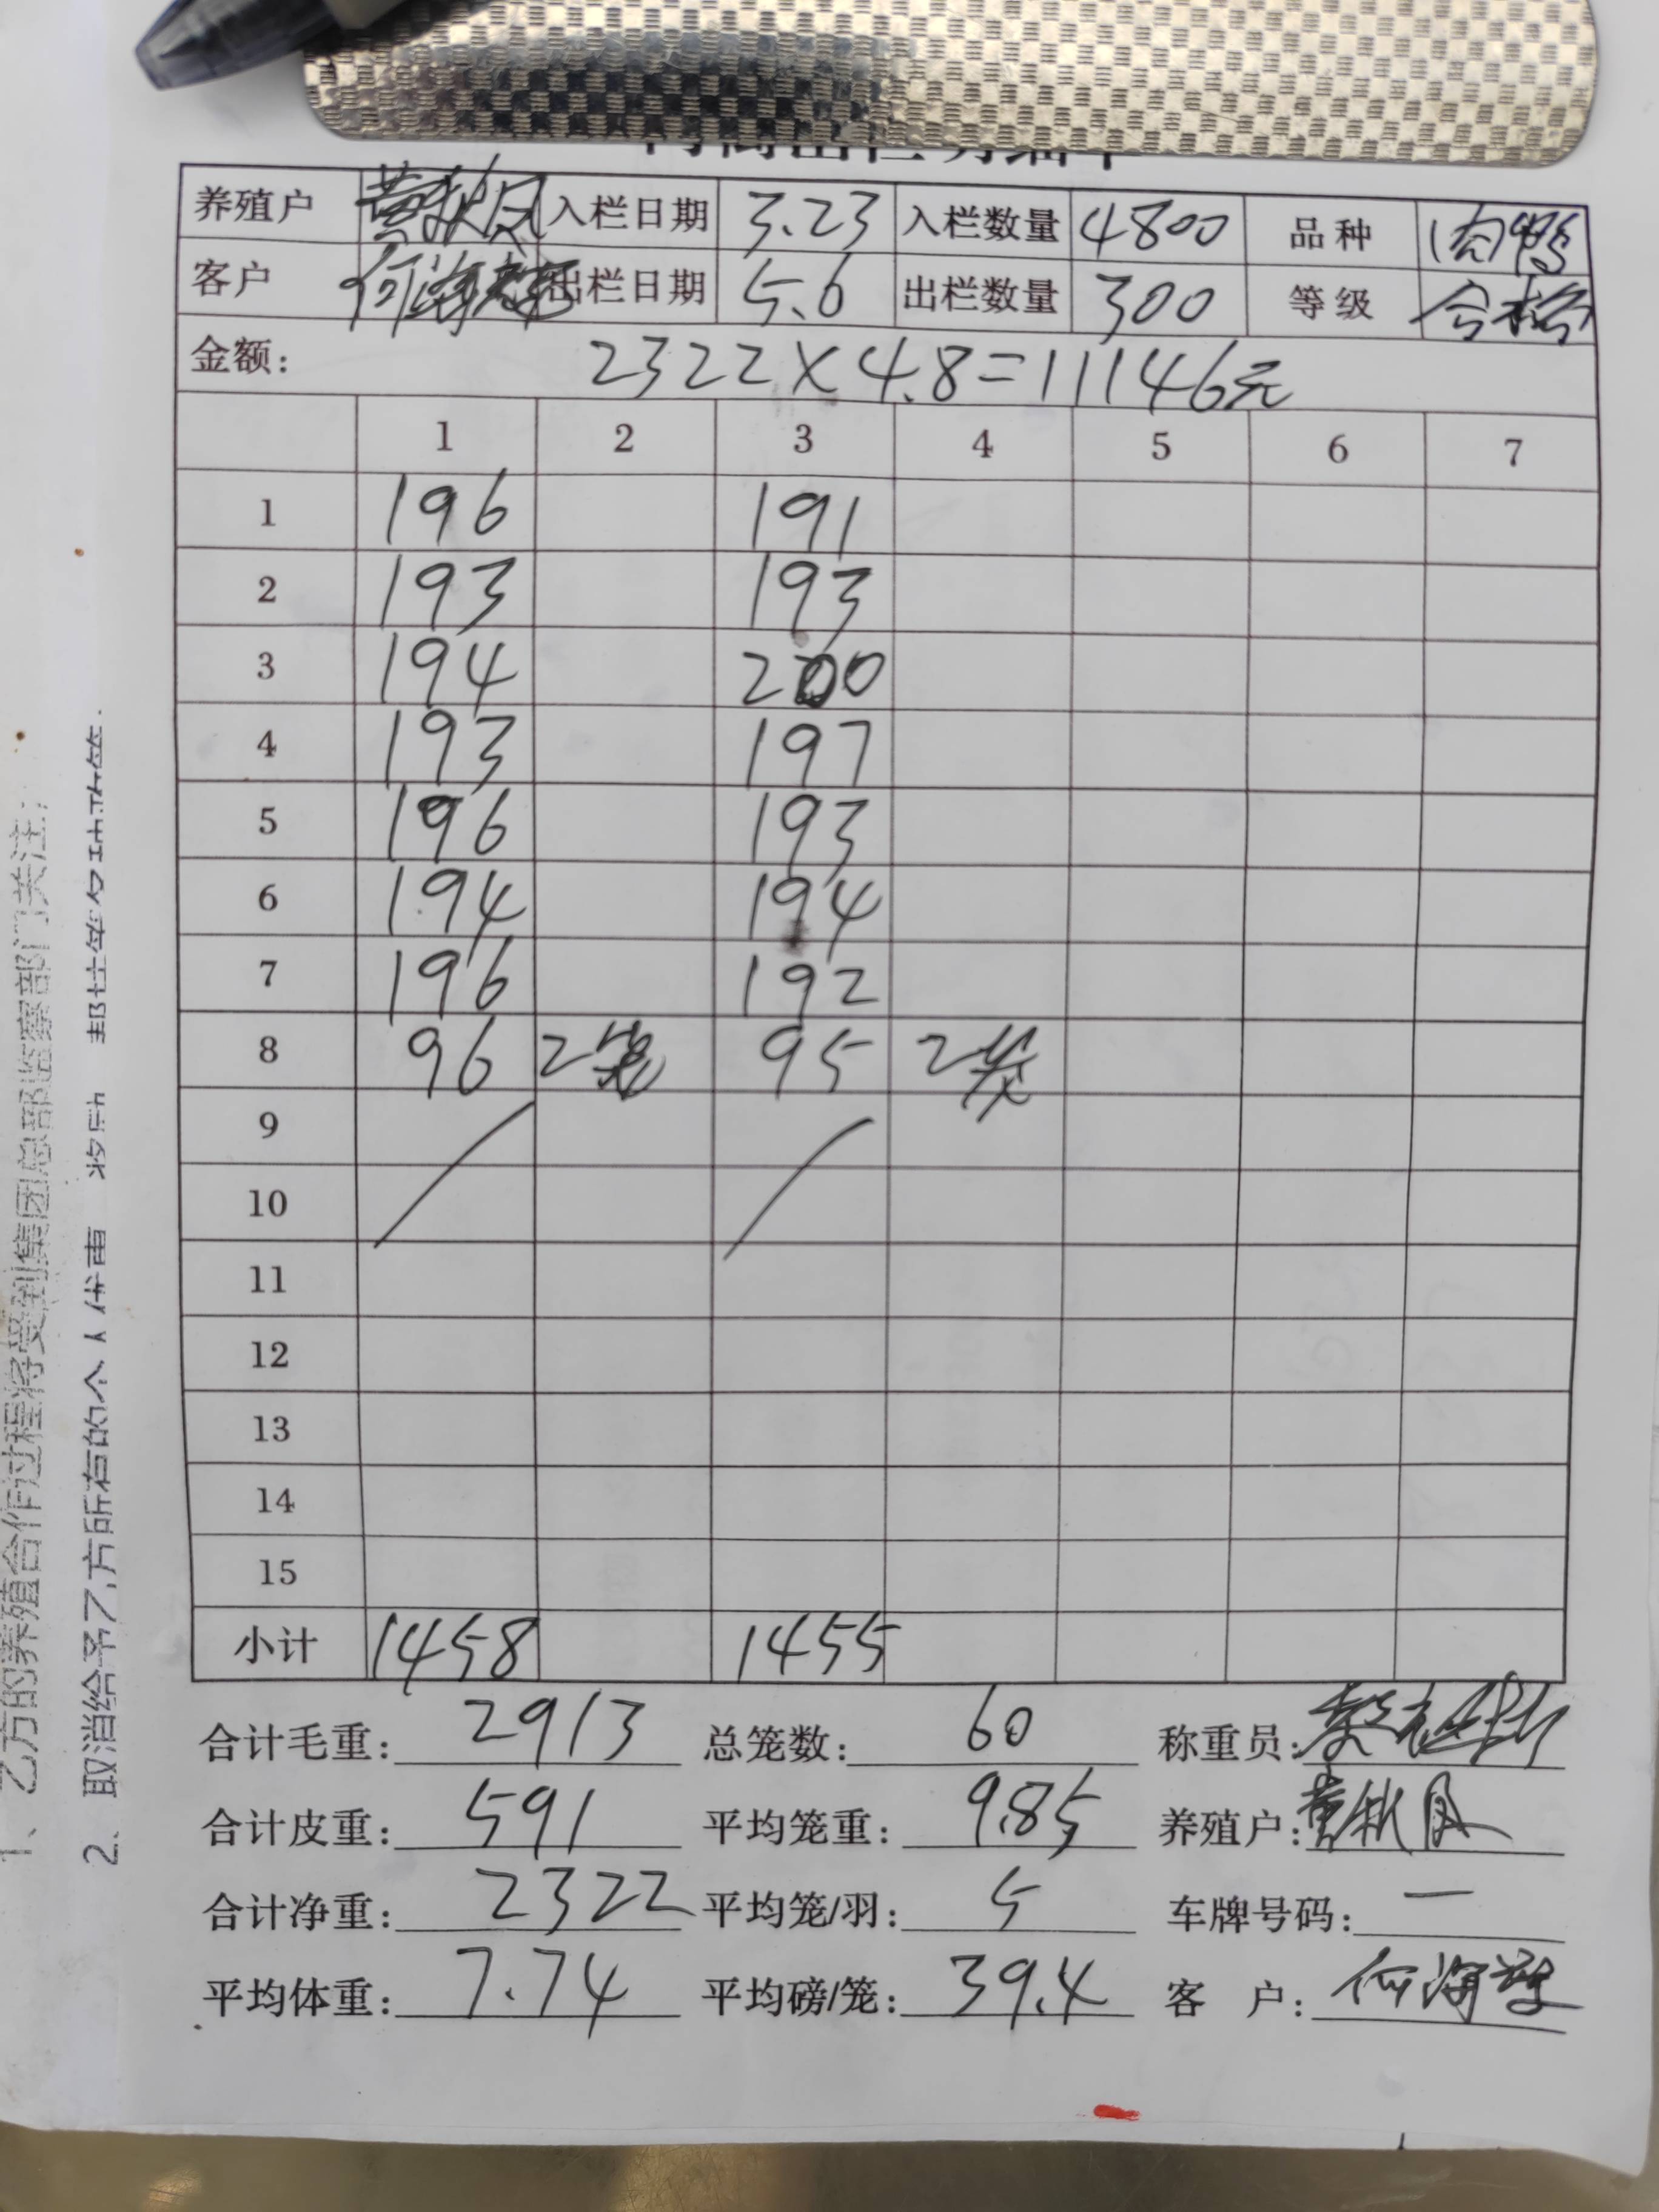 养殖户 黄秋凤 入栏日期 3.23 入栏数量 4800 品种 肉鸭
客户 何海 出栏日期 5.6 出栏数量 300 等级 合格
金额: 2322×4.8=11146元
1 2 3 4 5 6 7
1 196 191
2 193 193
3 194 200
4 193 197
5 196 193
6 194 194
7 196 192
8 96 2笼 95 2笼
9
10
11
12
13
14
15
小计 1458 1455
合计毛重: 2913 总笼数: 60 称重员:
合计皮重: 591 平均笼重: 9.85 养殖户: 黄秋凤
合计净重: 2322 平均笼/羽: 5 车牌号码: 一
平均体重: 7.74 平均磅/笼: 39.4 客 户: 何海
1、乙方的养殖合作过程将受到集团总部监察部门关注;
2、取消给予乙方所有的